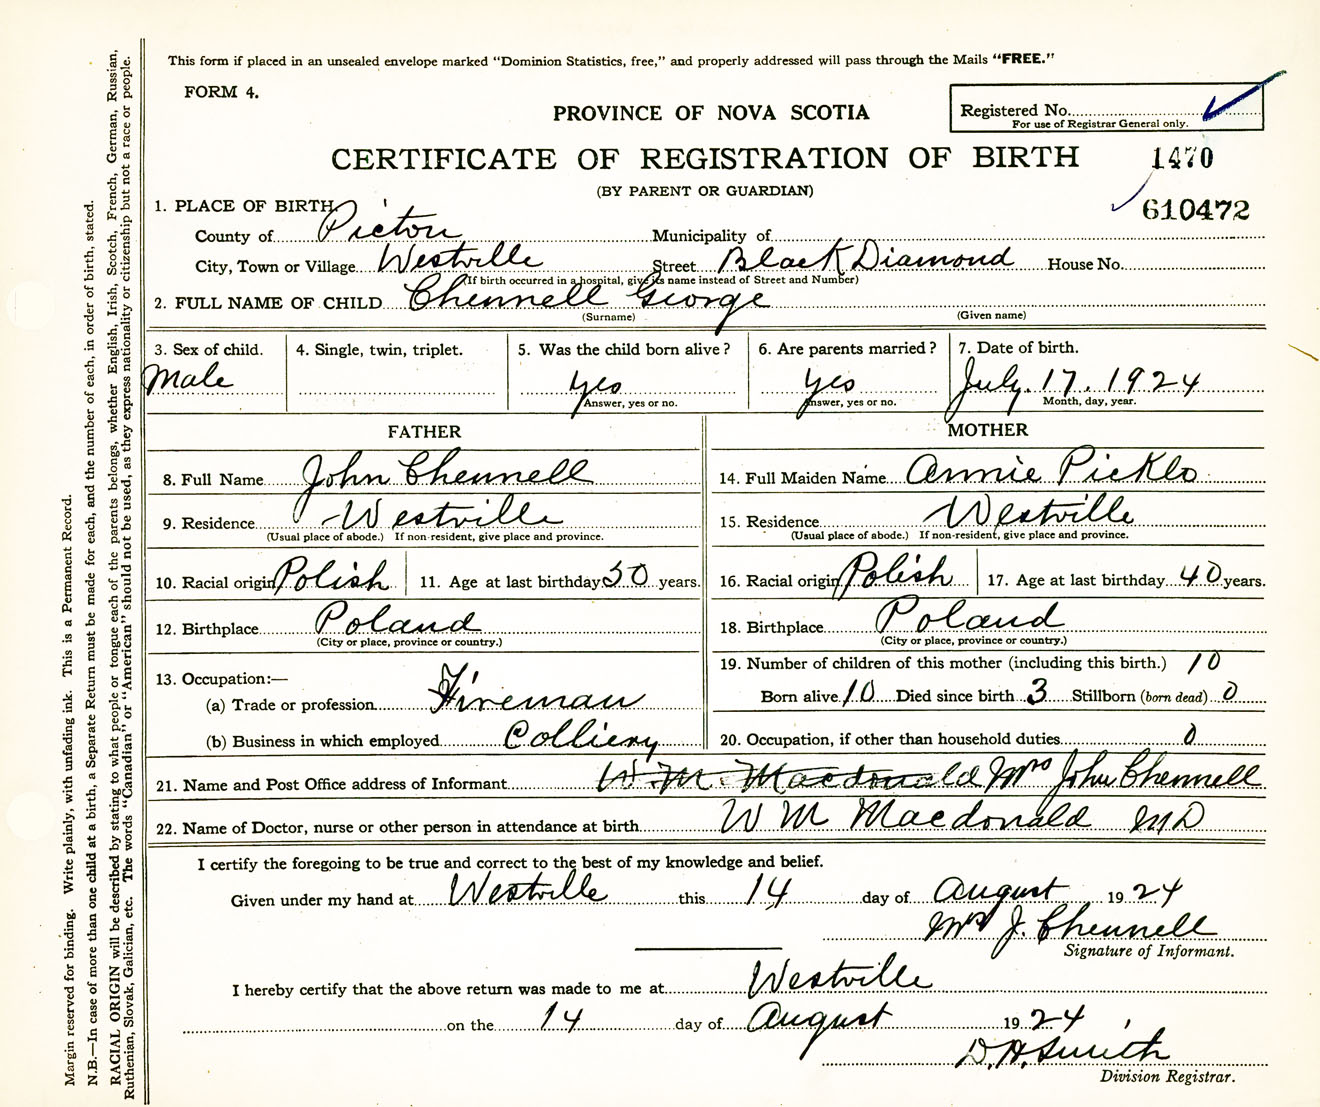 This form if placed in an unsealed envelope marked "Dominion Statistics, free," and properly addressed will pass through the Mails "FREE."
FORM 4.
PROVINCE OF NOVA SCOTIA
Registered No.
For use of Registrar General only.
CERTIFICATE OF REGISTRATION OF BIRTH
1470
(BY PARENT OR GUARDIAN)
610472
1. PLACE OF BIRTH
County of Pictou Municipality of
City, Town or Village Westville Street Black Diamond House No.
(If birth occurred in a hospital, give its name instead of Street and Number)
2. FULL NAME OF CHILD Chennell George
(Surname) (Given name)
3. Sex of child. 4. Single, twin, triplet. 5. Was the child born alive? 6. Are parents married? 7. Date of birth.
Male yes yes July. 17. 1924
Answer, yes or no. Answer, yes or no. Month, day, year.
FATHER MOTHER
8. Full Name John Chennell 14. Full Maiden Name Annie Picklo
9. Residence Westville 15. Residence Westville
(Usual place of abode.) If non-resident, give place and province. (Usual place of abode.) If non-resident, give place and province.
10. Racial origin Polish 11. Age at last birthday 50 years. 16. Racial origin Polish 17. Age at last birthday 40 years.
12. Birthplace Poland 18. Birthplace Poland
(City or place, province or country.) (City or place, province or country.)
13. Occupation:— 19. Number of children of this mother (including this birth.) 10
(a) Trade or profession Fireman Born alive 10 Died since birth 3 Stillborn (born dead) 0
(b) Business in which employed Colliery 20. Occupation, if other than household duties 0
21. Name and Post Office address of Informant W. M. Macdonald Mrs John Chennell
22. Name of Doctor, nurse or other person in attendance at birth W M Macdonald MD
I certify the foregoing to be true and correct to the best of my knowledge and belief.
Given under my hand at Westville this 14 day of August 1924
Mrs J. Chennell
Signature of Informant.
I hereby certify that the above return was made to me at Westville
on the 14 day of August 1924
D. H. Smith
Division Registrar.
Margin reserved for binding. Write plainly, with unfading ink. This is a Permanent Record.
N.B.—In case of more than one child at a birth, a Separate Return must be made for each, and the number of each, in order of birth, stated.
RACIAL ORIGIN will be described by stating to what people or tongue each of the parents belongs, whether English, Irish, Scotch, French, German, Russian,
Ruthenian, Slovak, Galician, etc. The words "Canadian" or "American" should not be used, as they express nationality or citizenship but not a race or people.